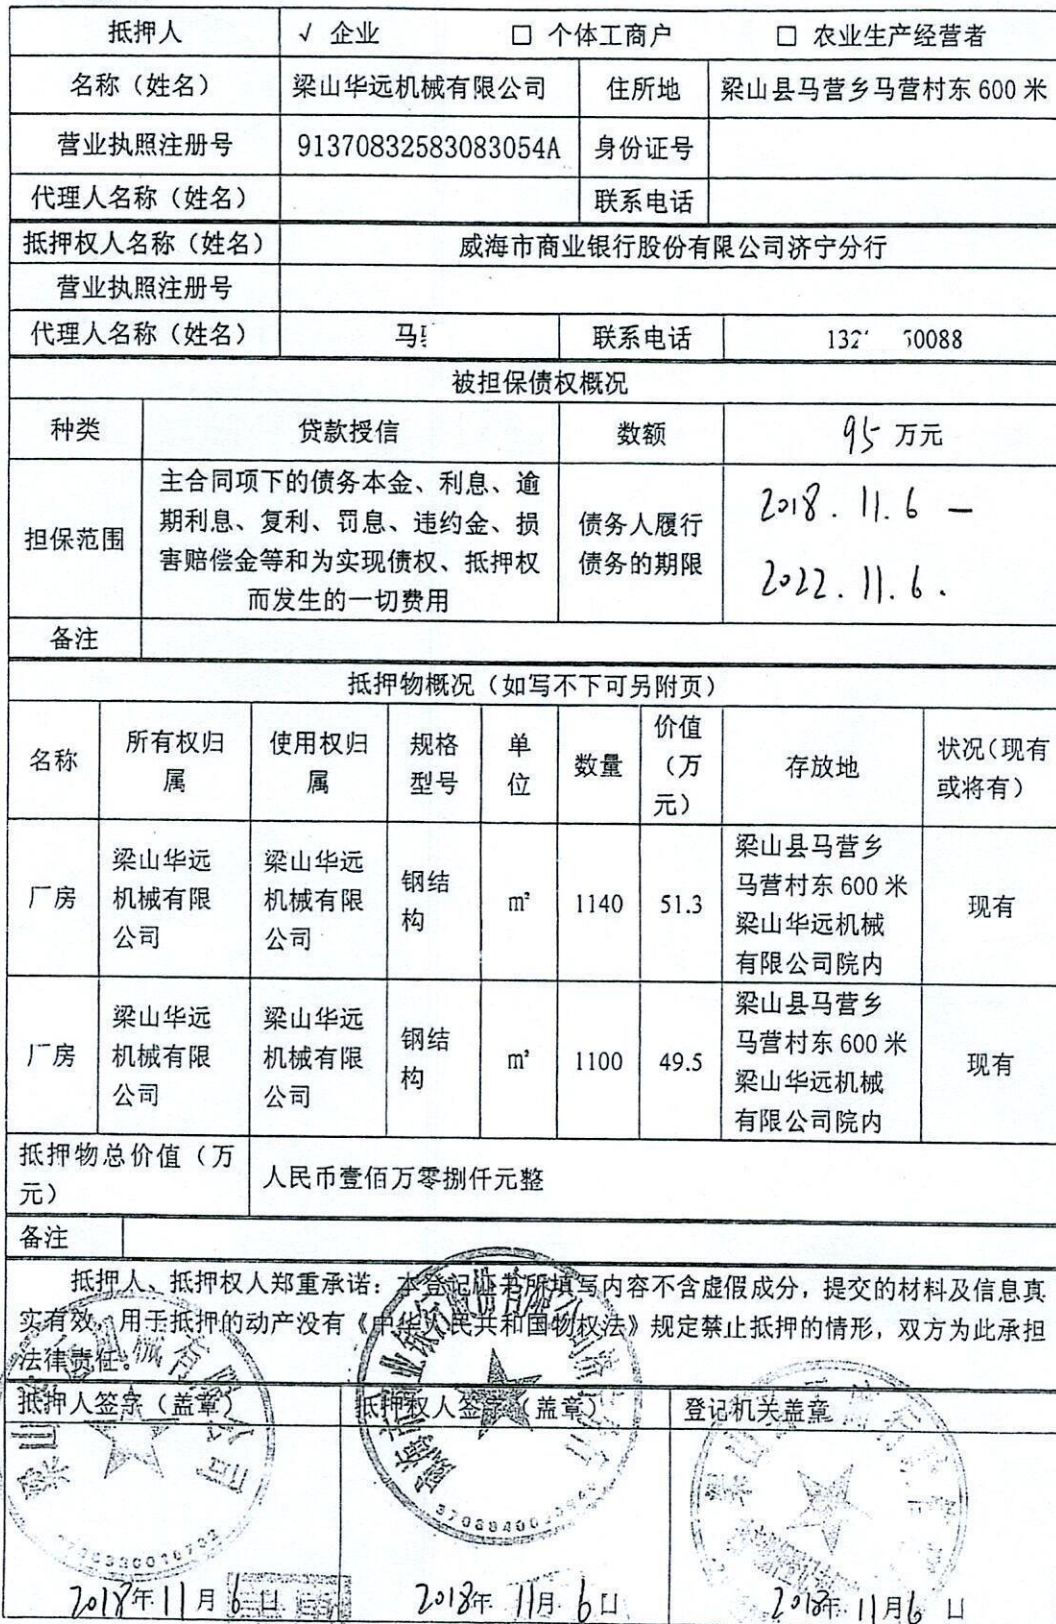 抵押人 √ 企业 □ 个体工商户 □ 农业生产经营者
名称（姓名） 梁山华远机械有限公司 住所地 梁山县马营乡马营村东 600 米
营业执照注册号 91370832583083054A 身份证号
代理人名称（姓名） 联系电话
抵押权人名称（姓名） 威海市商业银行股份有限公司济宁分行
营业执照注册号
代理人名称（姓名） 马 联系电话 132 50088
被担保债权概况
种类 贷款授信 数额 95 万元
担保范围
主合同项下的债务本金、利息、逾
期利息、复利、罚息、违约金、损
害赔偿金等和为实现债权、抵押权
而发生的一切费用
债务人履行
债务的期限
2018.11.6 —
2022.11.6.
备注
抵押物概况（如写不下可另附页）
名称
所有权归
属
使用权归
属
规格
型号
单
位
数量
价值
（万
元）
存放地
状况（现有
或将有）
厂房
梁山华远
机械有限
公司
梁山华远
机械有限
公司
钢结
构
m²
1140
51.3
梁山县马营乡
马营村东 600 米
梁山华远机械
有限公司院内
现有
厂房
梁山华远
机械有限
公司
梁山华远
机械有限
公司
钢结
构
m²
1100
49.5
梁山县马营乡
马营村东 600 米
梁山华远机械
有限公司院内
现有
抵押物总价值（万
元）
人民币壹佰万零捌仟元整
备注
抵押人、抵押权人郑重承诺：本登记证书所填写内容不含虚假成分，提交的材料及信息真
实有效，用于抵押的动产没有《中华人民共和国物权法》规定禁止抵押的情形，双方为此承担
法律责任。
抵押人签字（盖章） 抵押权人签字（盖章） 登记机关盖章
2018年 11 月 6 日 2018年 11月 6日 2018年 11月6 日